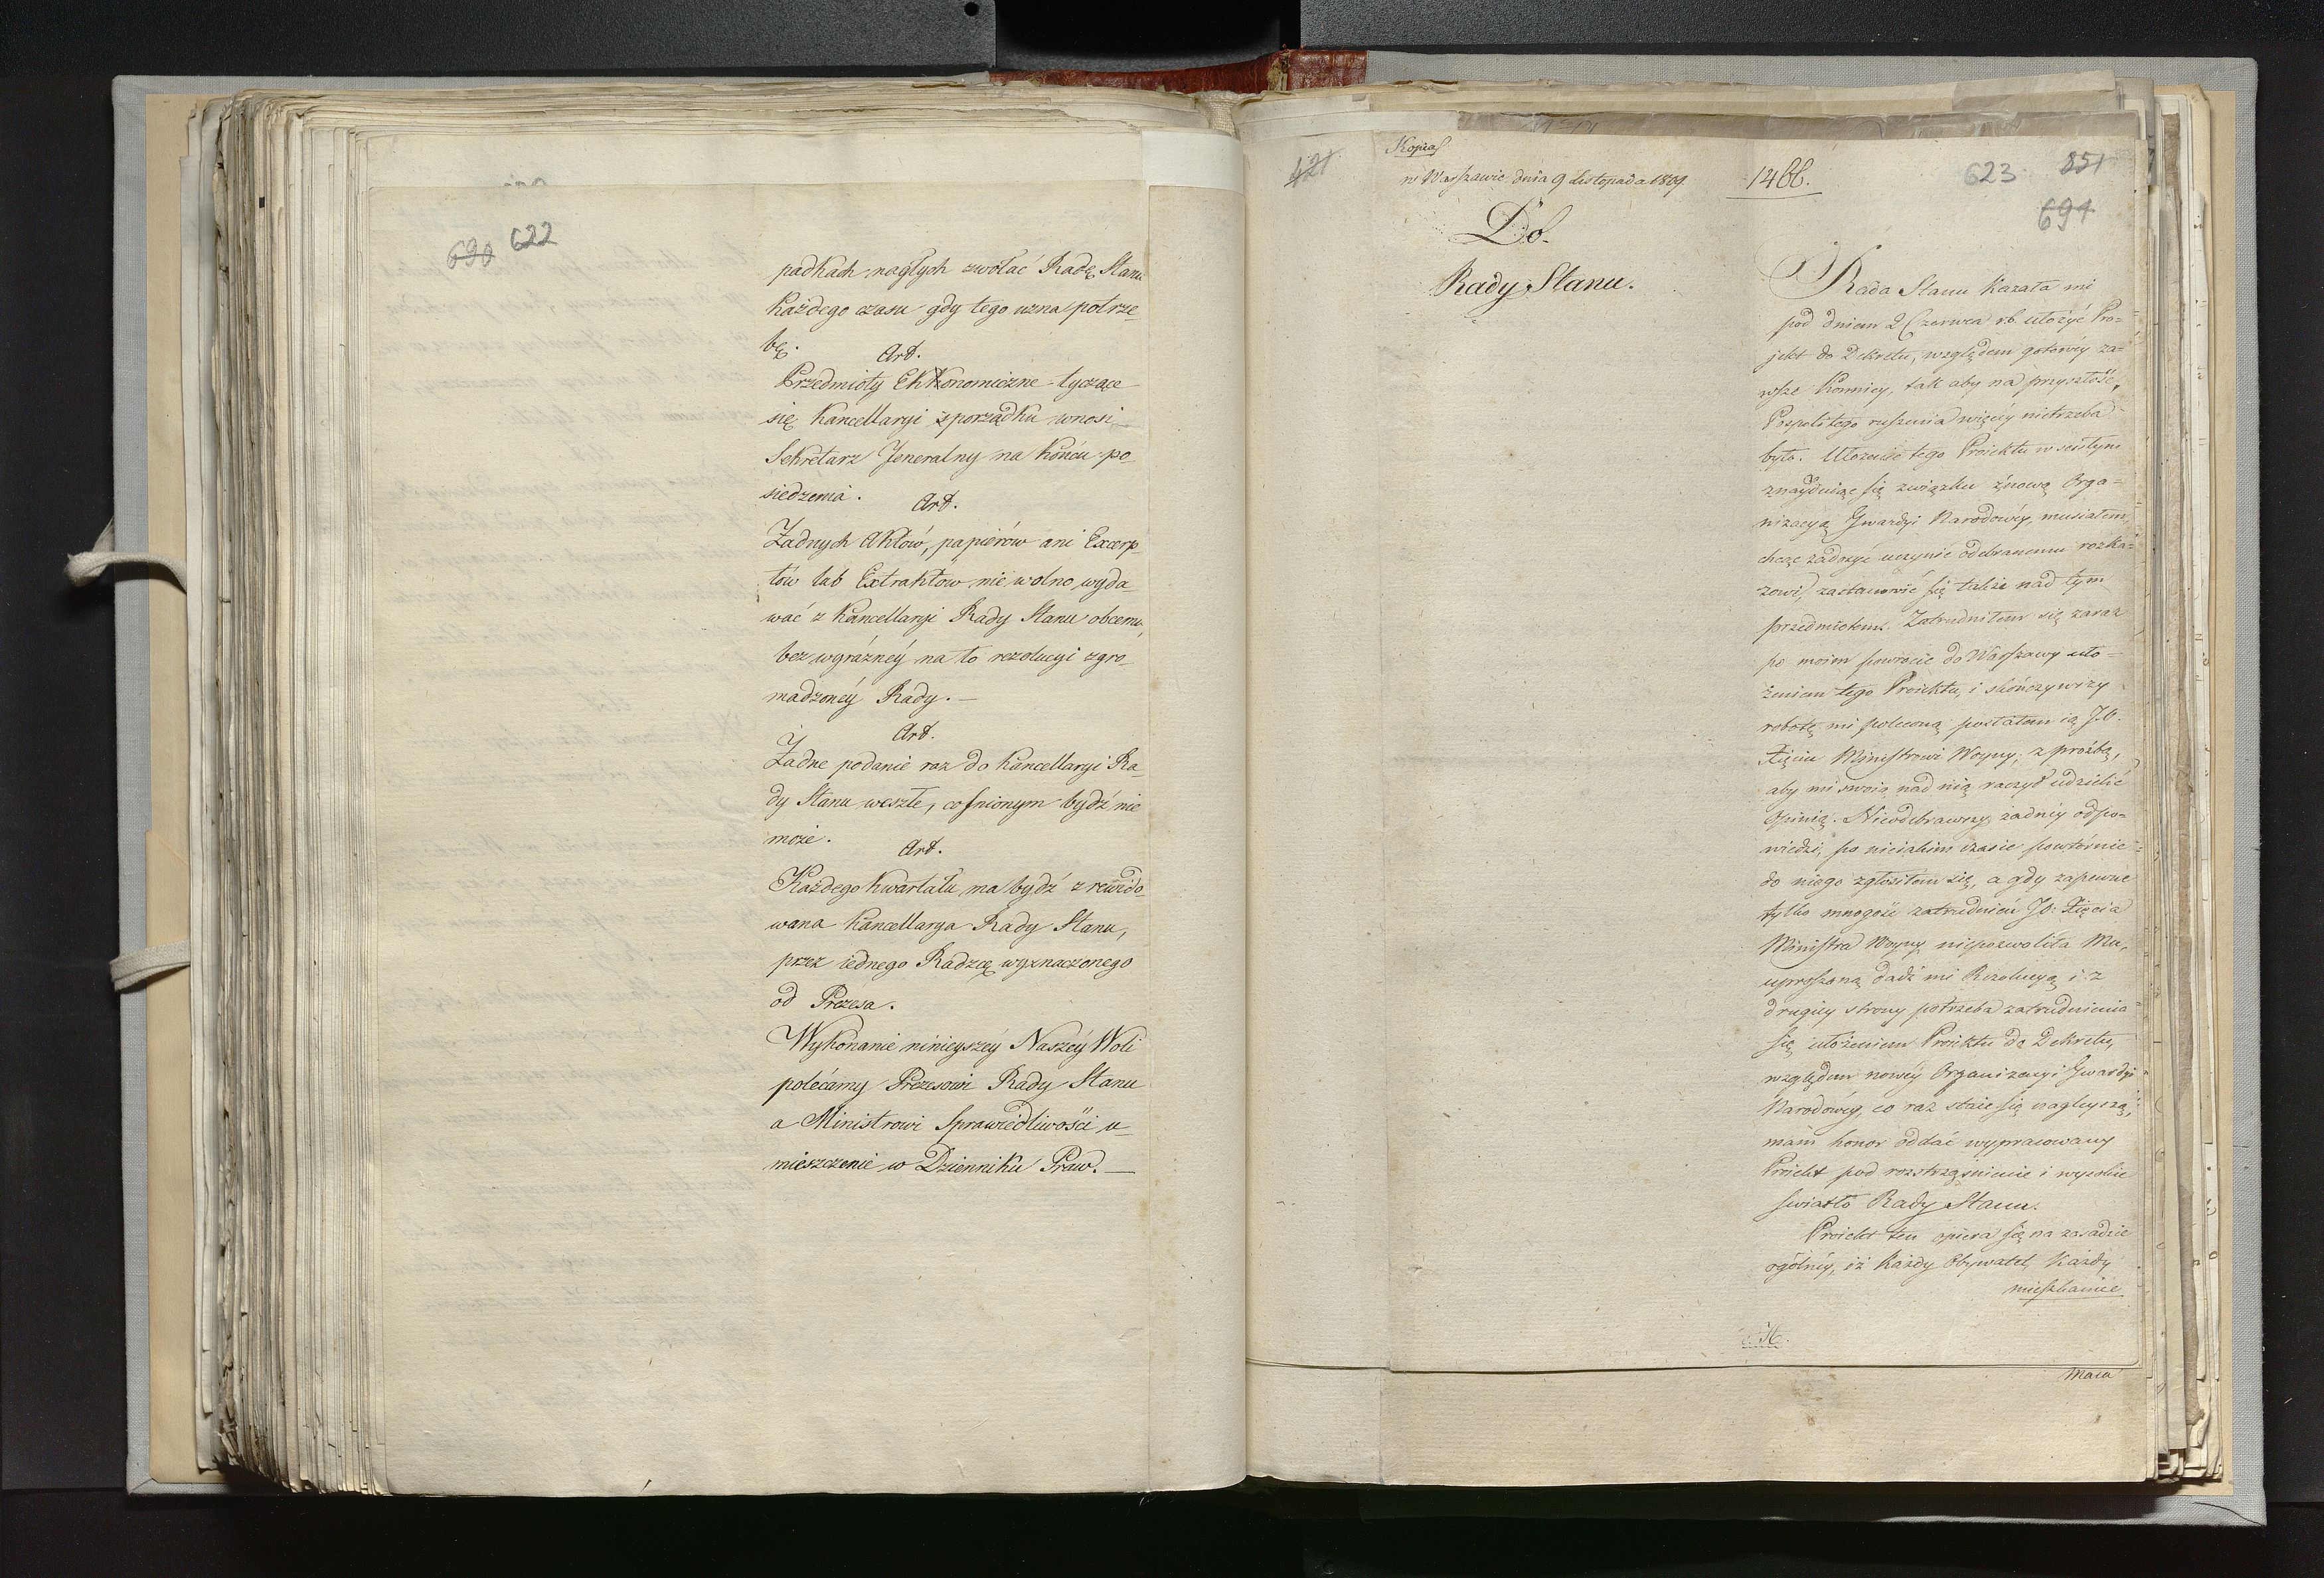 690 622
padkach nagłych zwołać Radę Stanu
każdego czasu gdy tego uzna potrze-
bę.
Art.
Przedmioty Ekkonomiczne tyczące
się Kancellaryi i porządku wnosi
Sekretarz Jeneralny na końcu po-
siedzenia.
Art.
Żadnych Aktów, papiérów ani Excerp-
tów lub Extraktów nie wolno wyda-
wać z Kancellaryi Rady Stanu obcemu,
bez wyráznéy na to rezolucyi zgro-
madzonéy Rady. —
Art.
Żadne podanie raz do Kancellaryi Ra-
dy Stanu weszłe, cofnionym bydź nie
może.
Art.
Każdego kwartału ma bydź zrewido-
wana Kancellarya Rady Stanu,
przez iednego Radzcę wyznaczonego
od Prezesa.
Wykonanie ninieyszéy Naszéy Woli
polécamy Prezesowi Rady Stanu
a Ministrowi Sprawiedliwości u-
mieszczenie w Dzienniku Praw. —
421
Kopia
w Warszawie dnia 9 Listopada 1809
1466.
623 851
694
Do.
Rady Stanu.
Rada Stanu kazała mi
pod dniem 2 Czerwca r.b. ułożyć Pro-
jekt do Dekretu, względem gotowéy za-
wsze Konnicy, tak aby na przyszłość,
Pospolitego ruszenia więcéy nietrzeba
było. Ułożenie tego Proiektu w ścisłym
znayduiąc się związku z nową Orga-
nizacyą Gwardyi Narodowéy, musiałem
chcąc zadosyć uczynić odebranemu rozka-
zowi, zastanowić się także nad tym
przedmiotem. Zatrudniłem się zaraz
po moim powrocie do Warszawy uło-
żeniem tego Proiektu, i skończywszy
robotę mi poleconą posłałem ią J.O.
Xięciu Ministrowi Woyny, z proźbą,
aby mi swoią nad nią raczył udzielić
Opinią. Nieodebrawszy żadnéy odpo-
wiedzi, po nieiakim czasie powtórnie
do niego zgłosiłem się, a gdy zapewne
tylko mnogość zatrudnień JO: Xięcia
Ministra Woyny niepozwoliła Mu,
uproszoną dadź mi Rezolucyą i z
drugiéy strony potrzeba zatrudnienia
się ułożeniem Proiektu do Dekretu,
względem nowéy Organizacyi Gwardyi
Narodowéy, co raz staie się nagleyszą,
mam honor oddać wypracowany
Proiekt pod rozstrząśnienie i wysokie
światło Rady Stanu.
Proiekt ten opiera się na zasadzie
ogólnéy, iż każdy Obywatel, każdy
mieszkaniec
maia